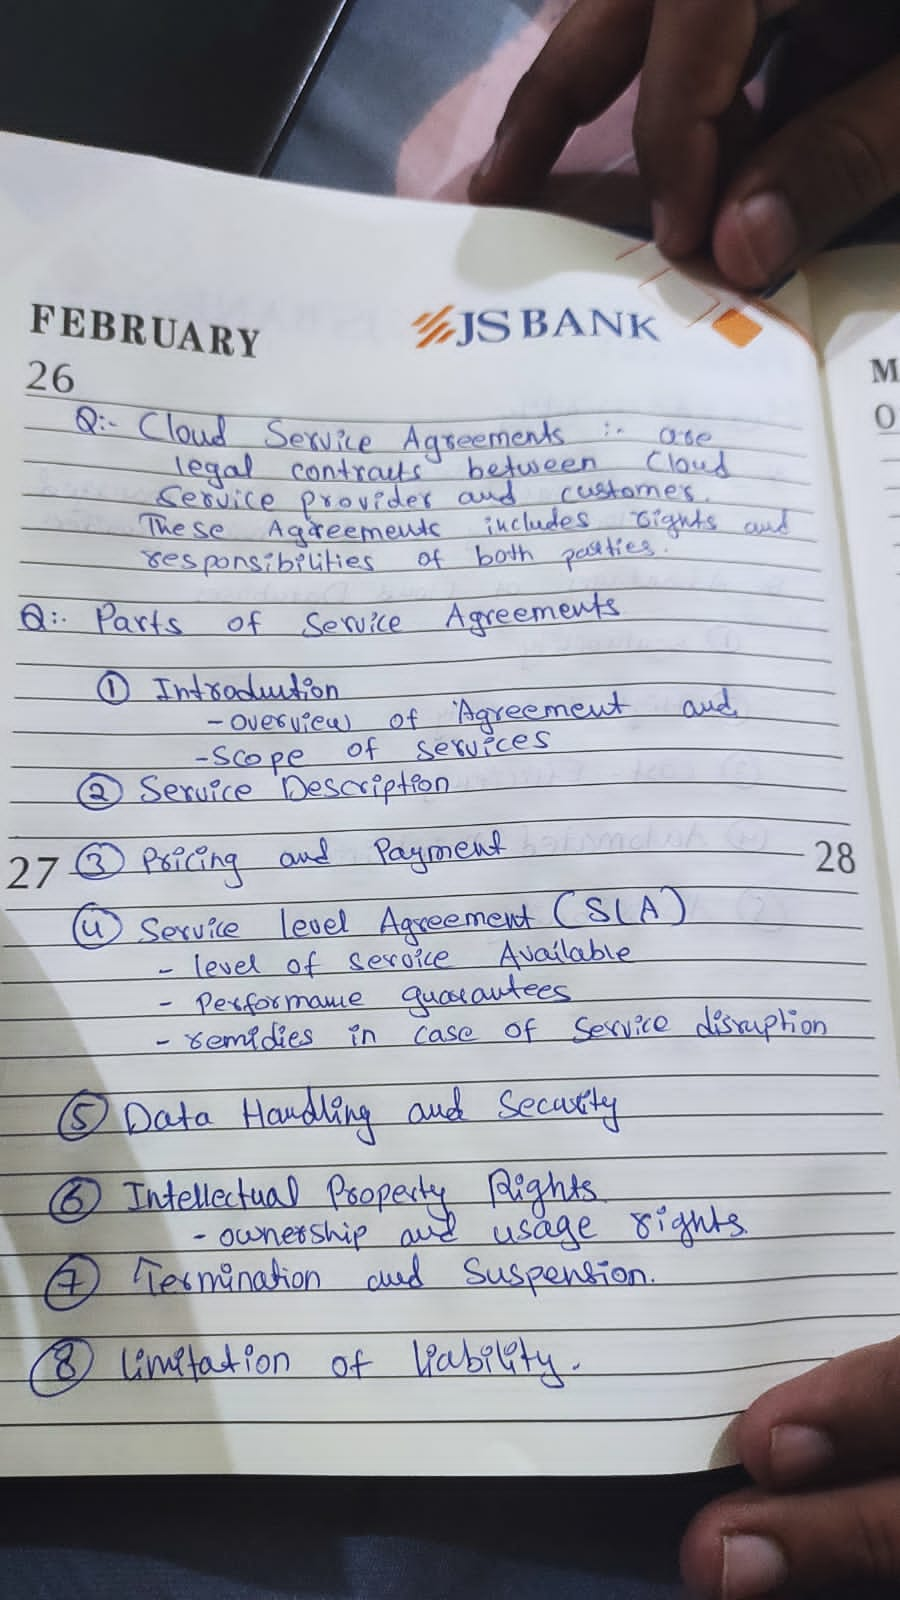 FEBRUARY
JS BANK
26
M
0
Q:- Cloud Service Agreements :- are
legal contracts between Cloud
Service provider and customer.
These Agreements includes rights and
responsibilities of both parties.
Q:- Parts of Service Agreements
① Introduction
- overview of Agreement and
- Scope of services
② Service Description
27 ③ Pricing and Payment 28
④ Service level Agreement (SLA)
- level of service Available
- Performance guarantees
- remidies in case of Service disruption
⑤ Data Handling and Security
⑥ Intellectual Property Rights
- ownership and usage rights
⑦ Termination and Suspension.
⑧ limitation of liability.